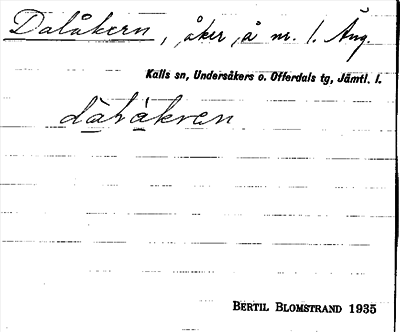 Dalåkern, åker å nr. 1. Äng.
Kalls sn, Undersåkers o. Offerdals tg, Jämtl. l.
dàƚàkren
BERTIL BLOMSTRAND 1935